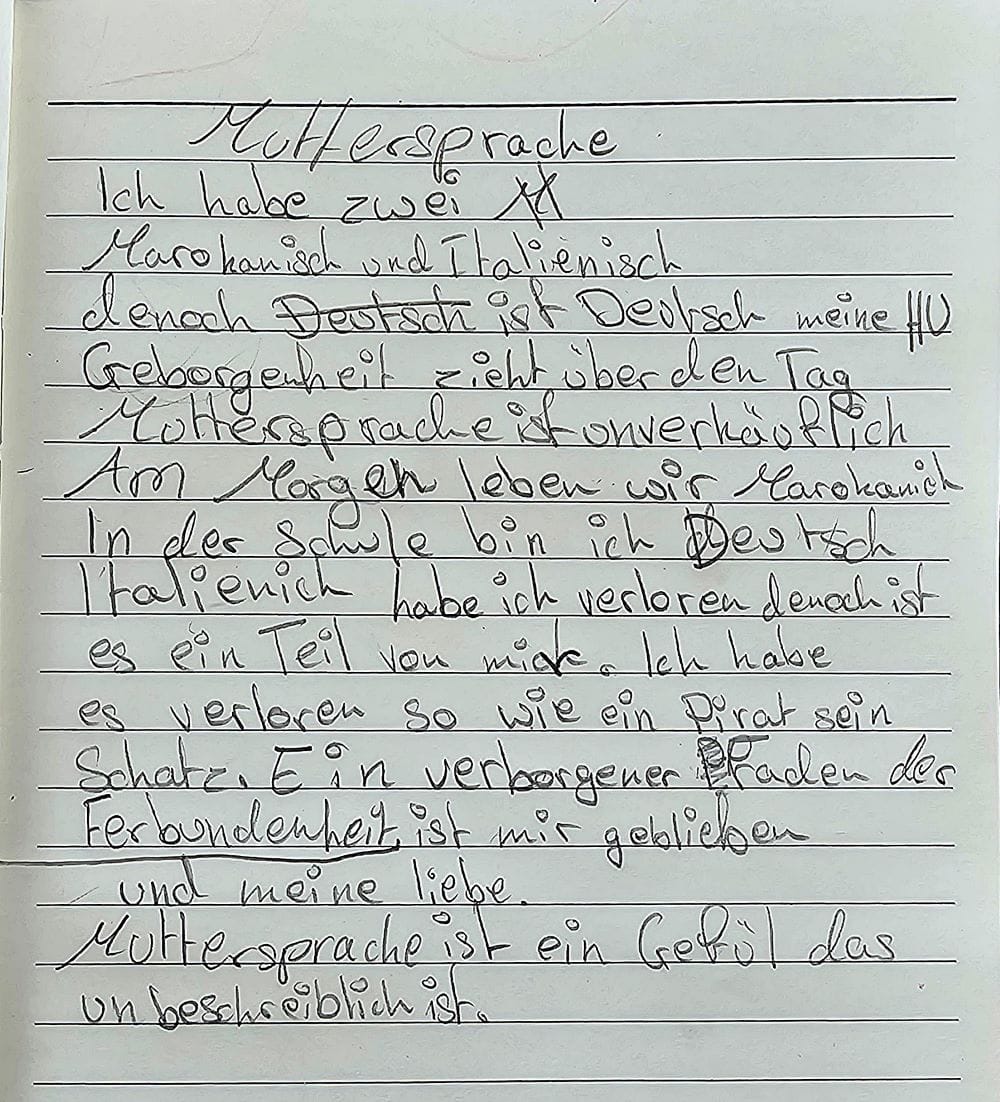 Muttersprache
Ich habe zwei
Marokanisch und Italienisch
denoch Deutsch ist Deutsch meine HU
Geborgenheit zieht über den Tag
Muttersprache ist unverkäuflich
Am Morgen leben wir Marokanich
In der Schule bin ich Deutsch
Italienich habe ich verloren denoch ist
es ein Teil von mir. Ich habe
es verloren so wie ein Pirat sein
Schatz. Ein verborgener Faden der
Ferbundenheit ist mir geblieben
und meine liebe.
Muttersprache ist ein Gefül das
unbeschreiblich ist.